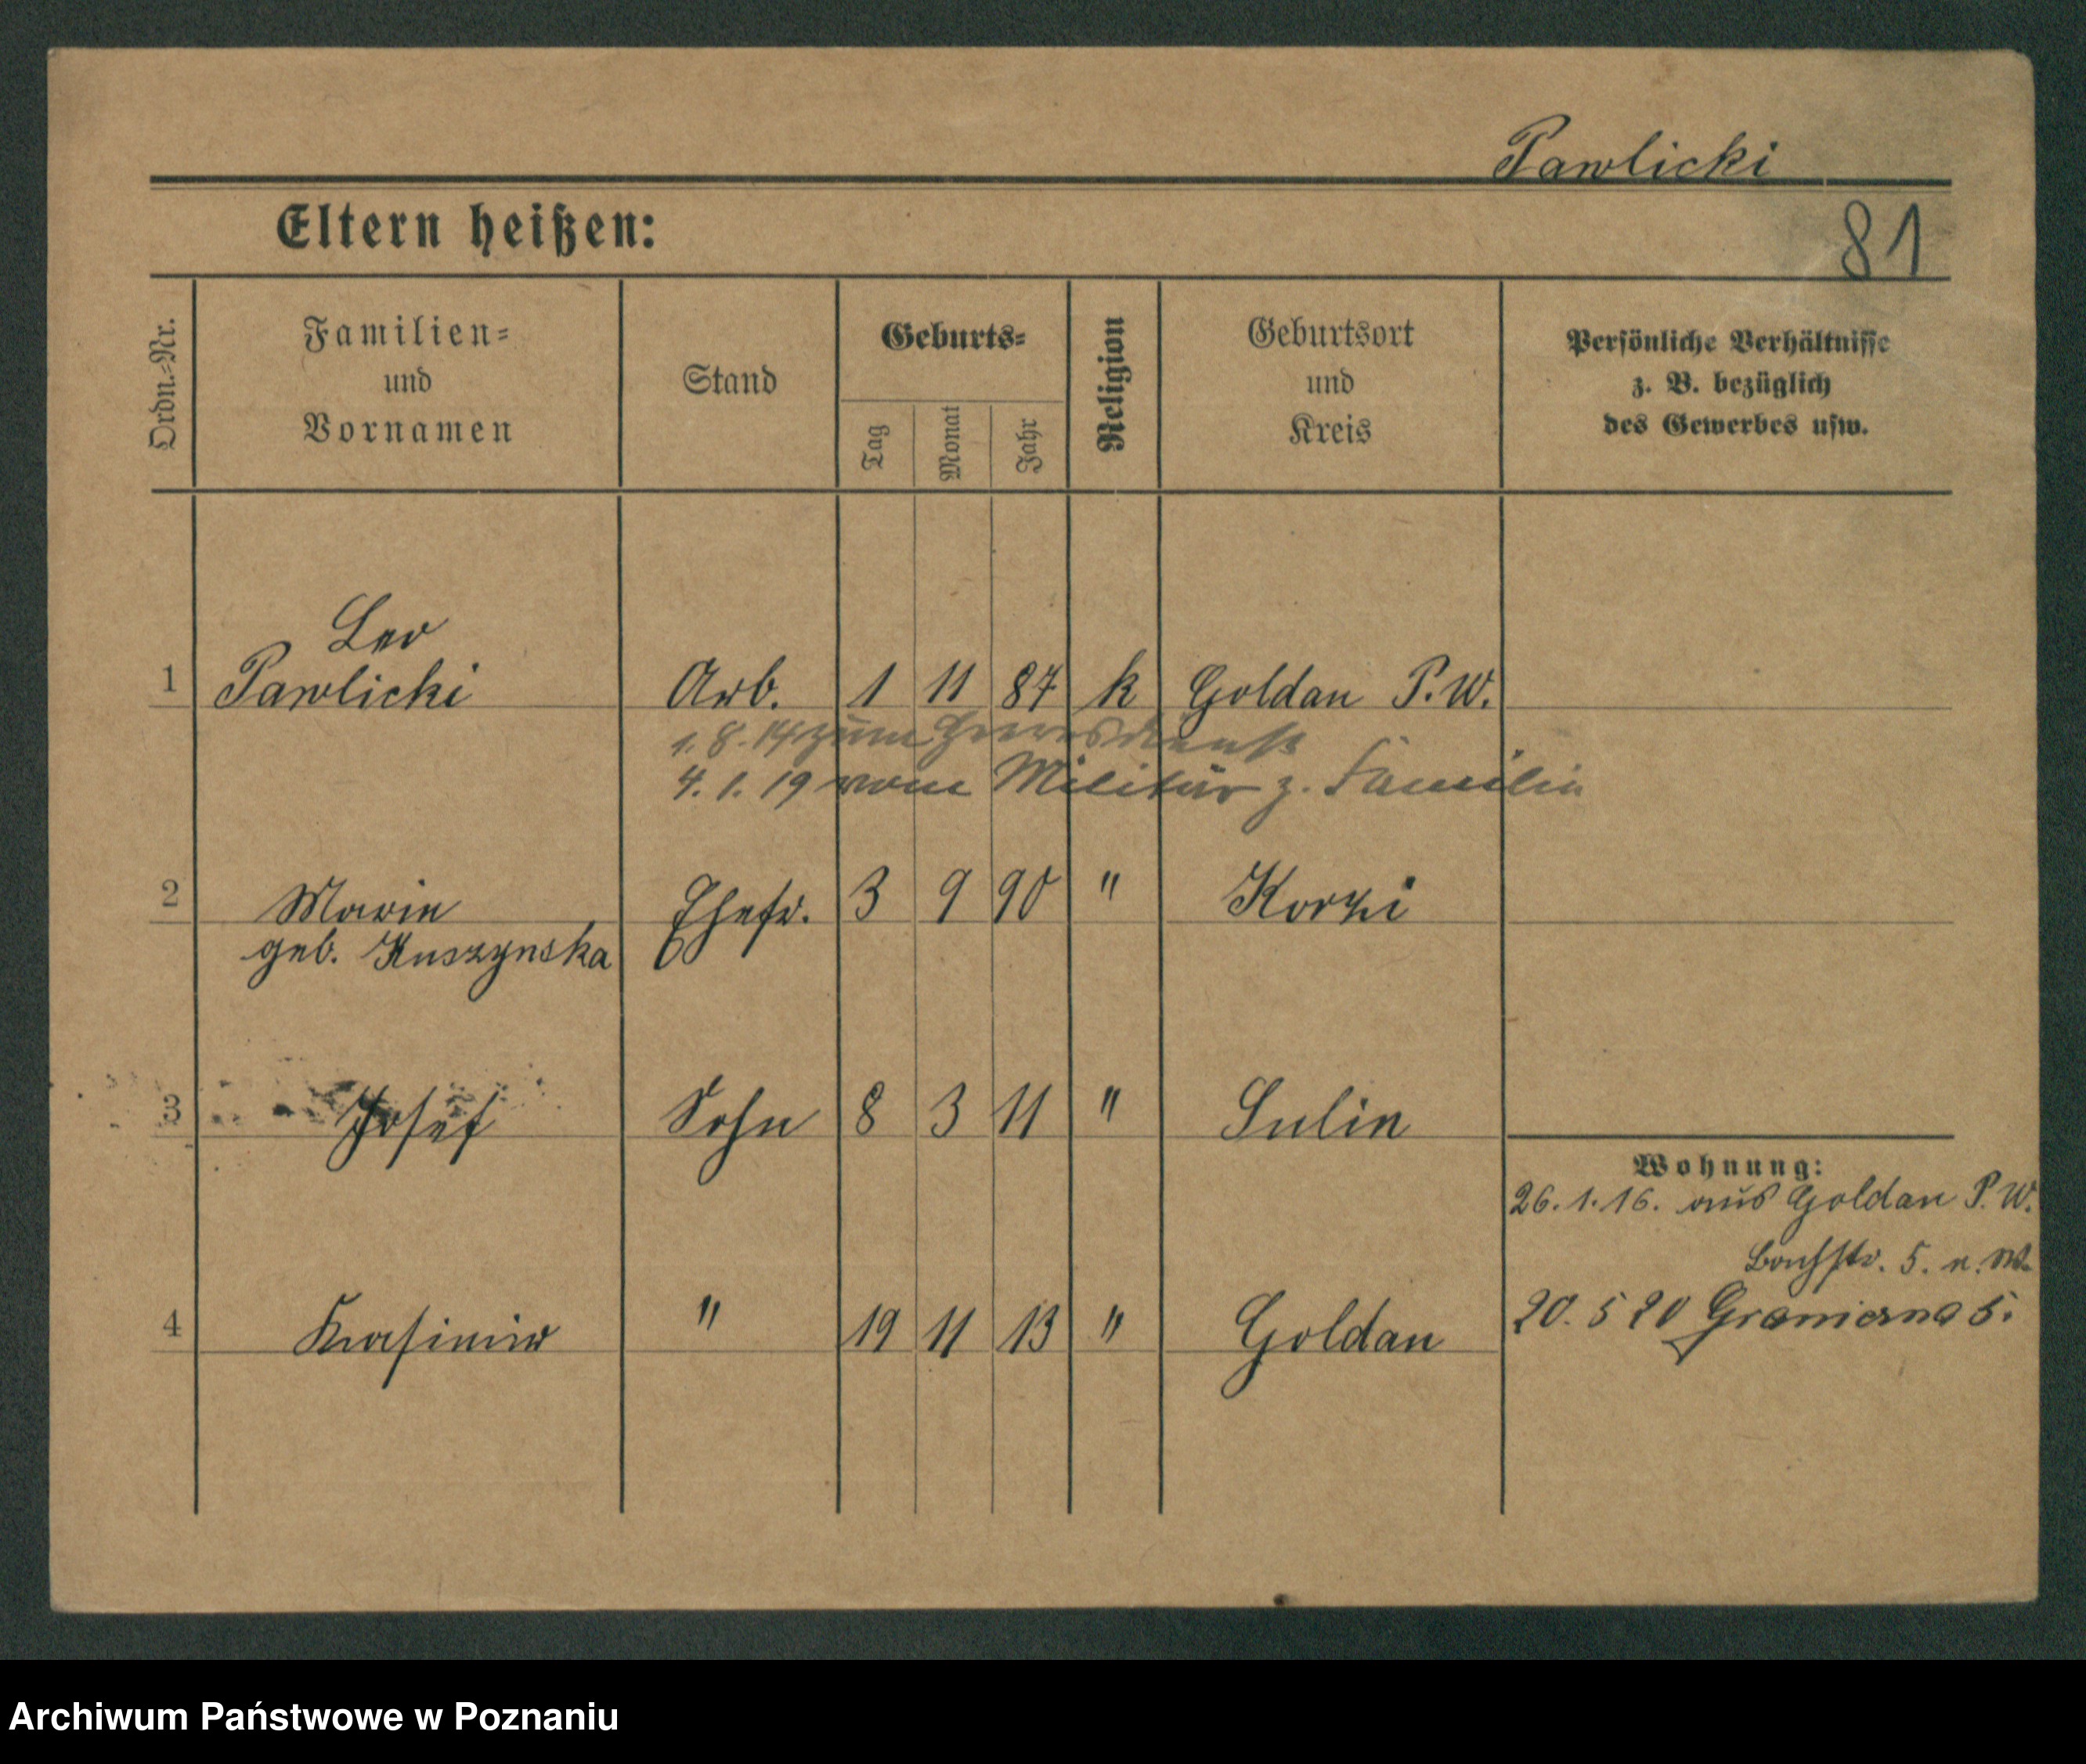 Pawlicki
Eltern heißen:
81
Ordn.=Nr.
Familien=
und
Vornamen
Stand
Geburts=
Tag
Monat
Jahr
Religion
Geburtsort
und
Kreis
Persönliche Verhältnisse
z. B. bezüglich
des Gewerbes usw.
Leo
1 Pawlicki Arb. 1 11 87 k Goldan P. W.
1. 8. 14 zum Heeresdienst
4. 1. 19 vom Militär z. Familie
2 Marie Ehefr. 3 9 90 " Korzi
geb. Kuszynska
3 Josef Sohn 8 3 11 " Sulin
Wohnung:
26. 1. 16. aus Goldan P. W.
Bachstr. 5. n. W.
20. 5 20 Graniczna 5.
4 Kasimir " 19 11 13 " Goldan
Archiwum Państwowe w Poznaniu